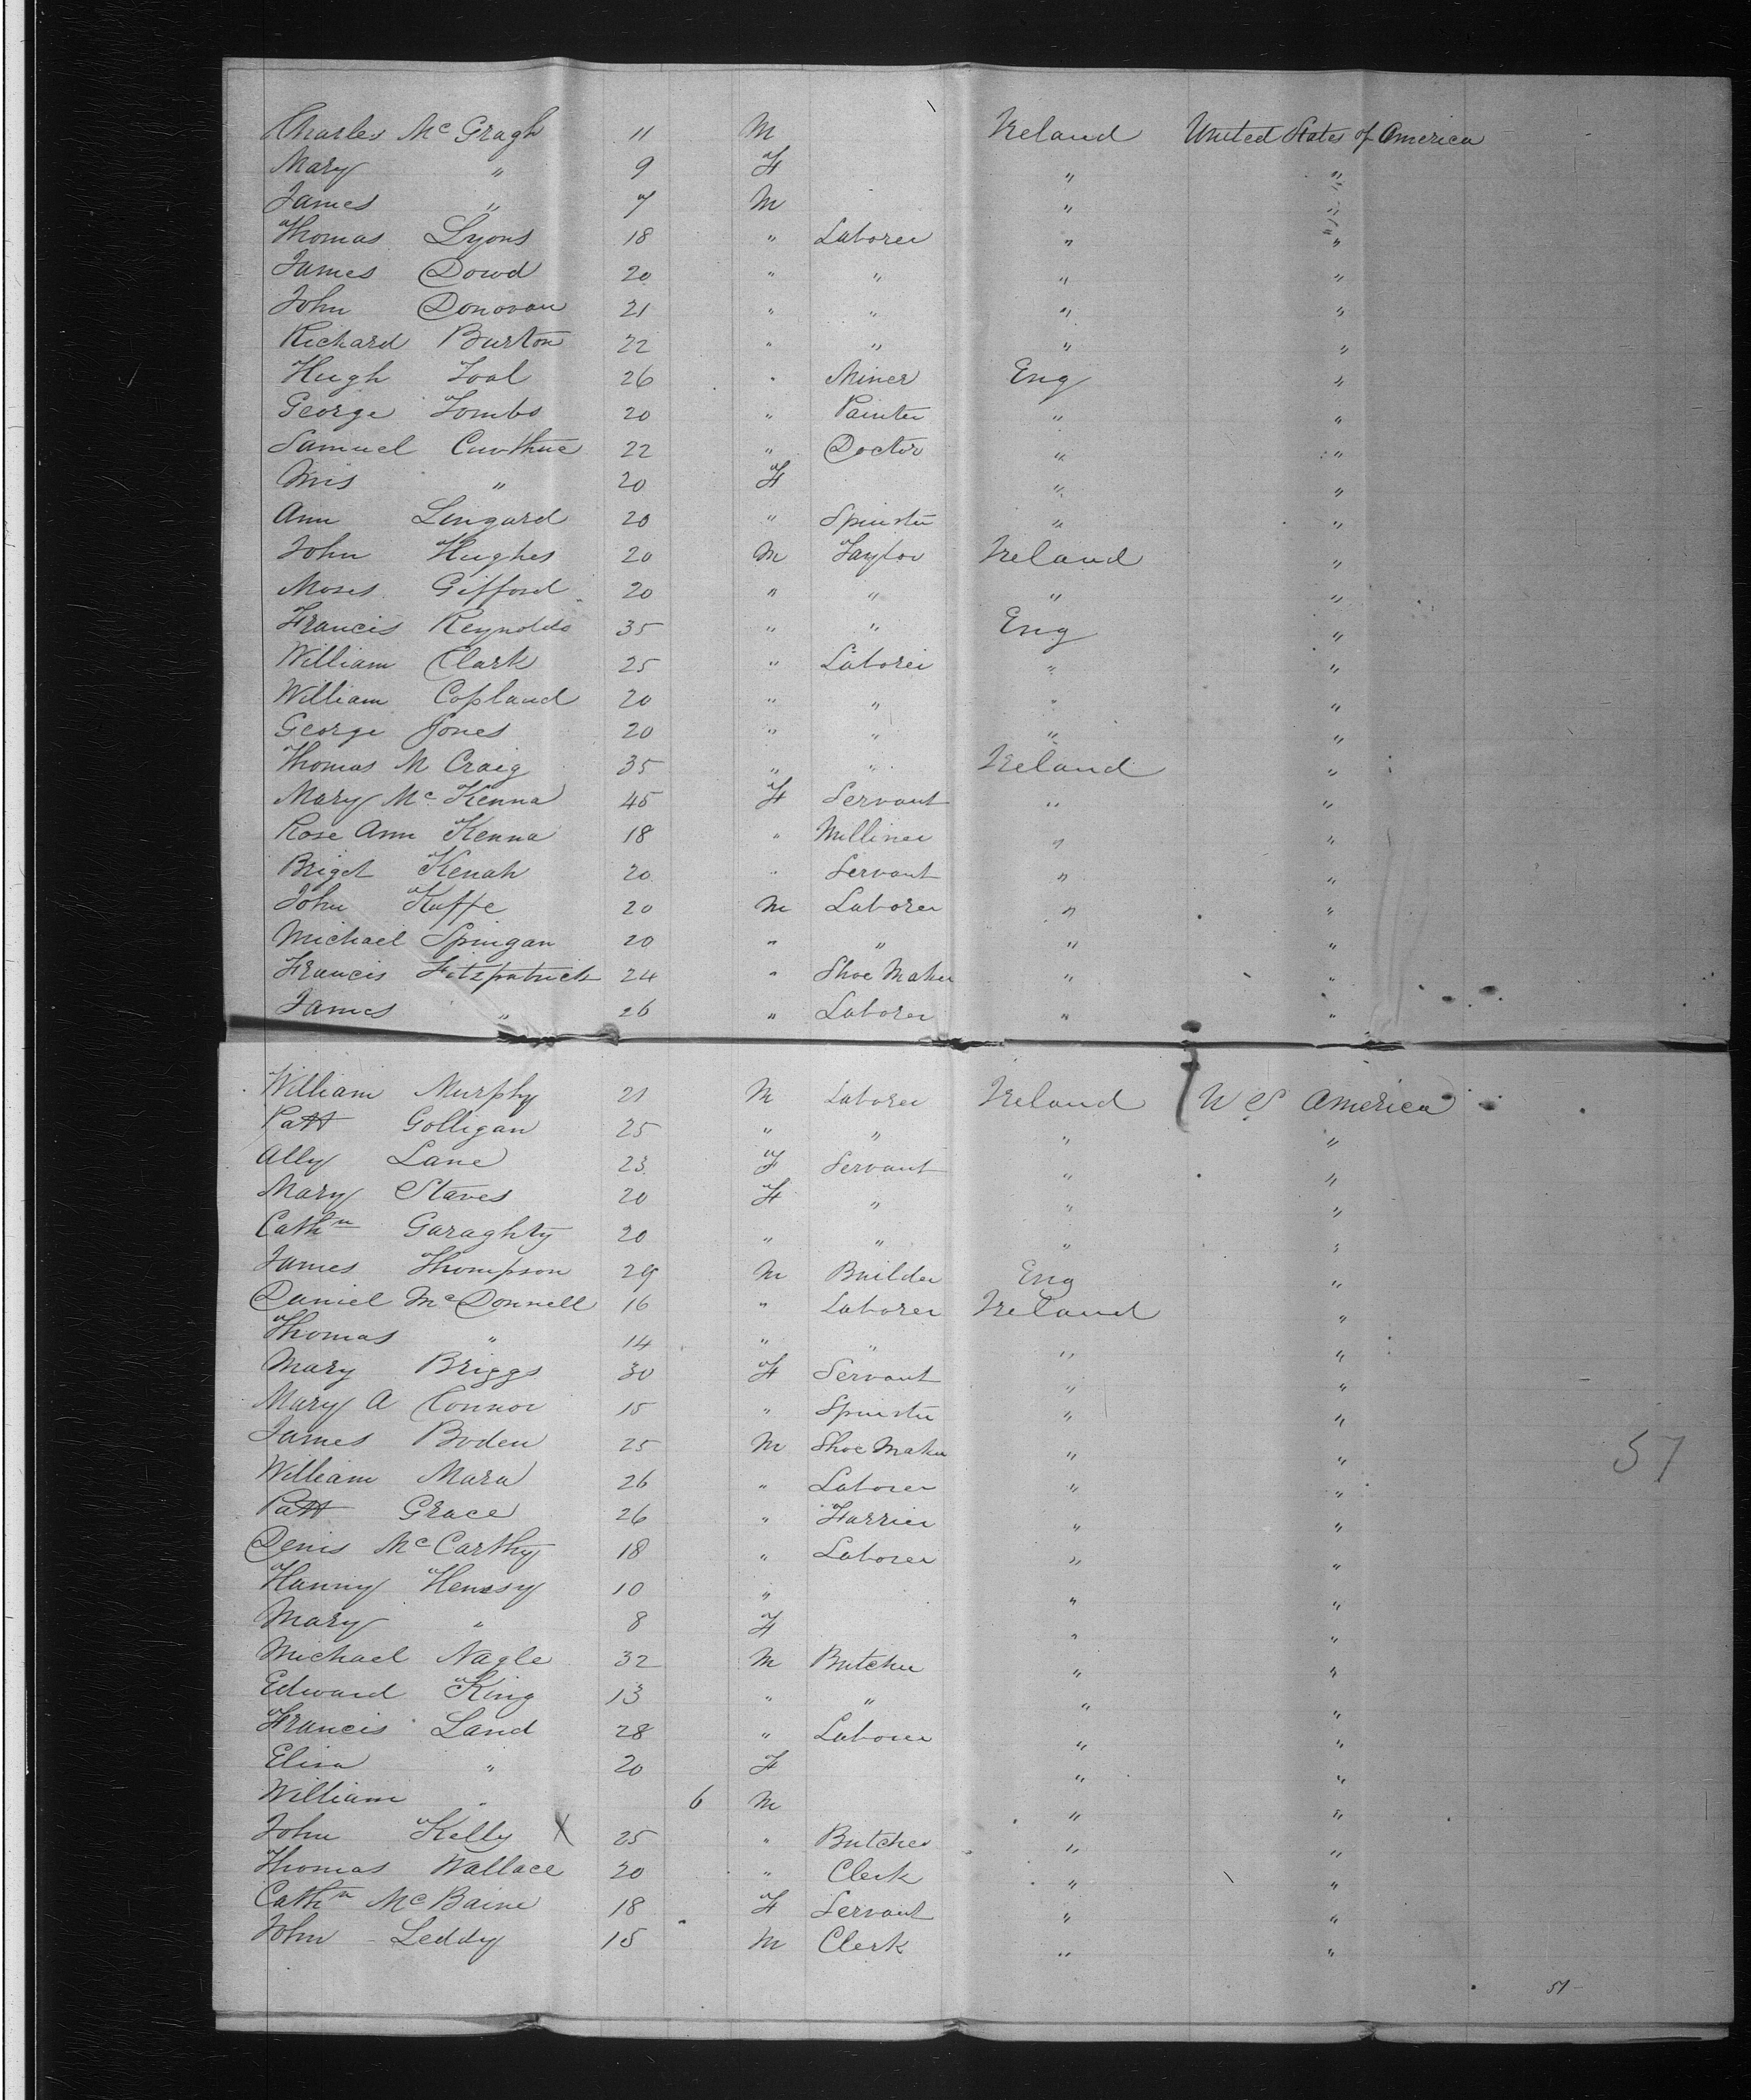 Charles Mc Gragh 11 M Ireland United States of America
Mary " 9 F " "
James " 7 M " "
Thomas Lyons 18 " Laborer " "
James Dowd 20 " " " "
John Donovan 21 " " " "
Richard Burton 22 " " " "
Hugh Toal 26 " Miner Eng "
George Tombs 20 " Painter " "
Samuel 22 " Doctor " "
Mrs " 20 F " "
Ann Lingard 20 " Spinster " "
John Hughes 20 M Taylor Ireland "
Moses Gifford 20 " " " "
Francis Reynolds 35 " " Eng "
William Clark 25 " Laborer " "
William Copland 20 " " " "
George Jones 20 " " " "
Thomas M Craig 35 " " Ireland "
Mary Mc Kenna 45 F Servant " "
Rose Ann Kenna 18 " Milliner " "
Briget Kenah 20 " Servant " "
John 20 M Laborer " "
Michael 20 " " " "
Francis Fitzpatrick 24 " Shoe Maker " "
James " 26 " Laborer " "
William Murphy 21 M Laborer Ireland U S America
Patt Golligan 25 " " " "
Ally Lane 23 F Servant " "
Mary Staves 20 F " " "
Cathn Garaghty 20 " " " "
James Thompson 29 M Builder Eng "
Daniel Mc Donnell 16 " Laborer Ireland "
Thomas " 14 " " " "
Mary Briggs 30 F Servant " "
Mary A Connor 15 " Spinster " "
James Boden 25 M Shoe Maker " "
William Mara 26 " Laborer " "
57
Patt Grace 26 " Farrier " "
Denis Mc Carthy 18 " Laborer " "
Hanny Henssy 10 " " "
Mary " 8 F " "
Michael Nagle 32 M Butcher " "
Edward King 13 " " " "
Francis Land 28 " Laborer " "
Eliza " 20 F " "
William " 6 M " "
John Kelly X 25 " Butcher " "
Thomas Wallace 20 " Clerk " "
Cathn Mc Baine 18 F Servant " "
John Leddy 15 M Clerk " "
51